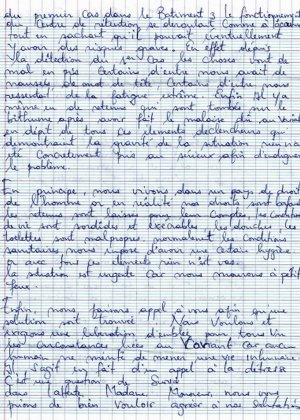 du premier cas dans le Batiment 3 le fonctionnement
du Centre de rétention se déroulait comme à
tout en sachant qu'il pouvait éventuellement
Y avoir des risques graves. En effet depuis
la détection du 1er Cas les choses vont de
mal en pis Certains d'entre nous avait de
nausées, de mal de tête Certains d'entre nous
de la fatigue extrême. Enfin Il y a
même eu de retenus qui sont tombés sur le
bithume après avoir fait le malaise dû au
en dépit de tous ces éléments déclencheurs qui
démontraient la gravité de la situation rien n'a
été Concrètement pris au sérieux afin d'endiguer
le problème.
En principe, nous vivons dans un pays de droit
de l'homme or en réalité nos droits sont bafoués
les retenus sont laissés pour leur Comptes, les conditions
de vie sont sordides et exécrables les douches, les
toilettes sont malpropres, normalement les conditions
sanitaires nous impose d'avoir une certaine hygiène
or avec tous ces éléments rien n'est vrai.
la situation est urgente Car nous mourons à petit
feu.
Enfin, nous faisons appel à vous afin qu'une
solution soit trouvée. Nous Voulons et
exigeons une libération d'emblée pour tous Vu
les circonstances liées au Variant car aucun
humain ne mérite de mener une vie inhumaine
Il s'agit en fait d'un appel à la détresse
C'est une question de Survie
dans l'attente Madame, Monsieur, nous vous
prions de bien Vouloir agréer à nos salutations